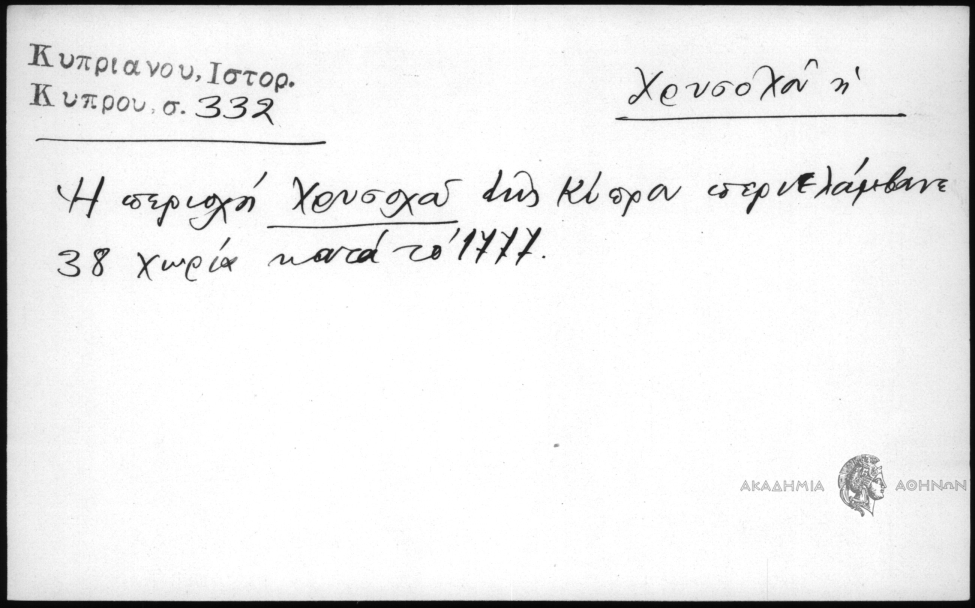 Κυπριανου, Ιστορ.
Κυπρου, σ. 332
Χρυσοχοῦ ἡ
Ἡ περιοχή Χρυσοχοῦ τῆς Κύπρου περιελάμβανε
38 χωρία κατά τό 1777.
ΑΚΑΔΗΜΙΑ ΑΘΗΝΩΝ